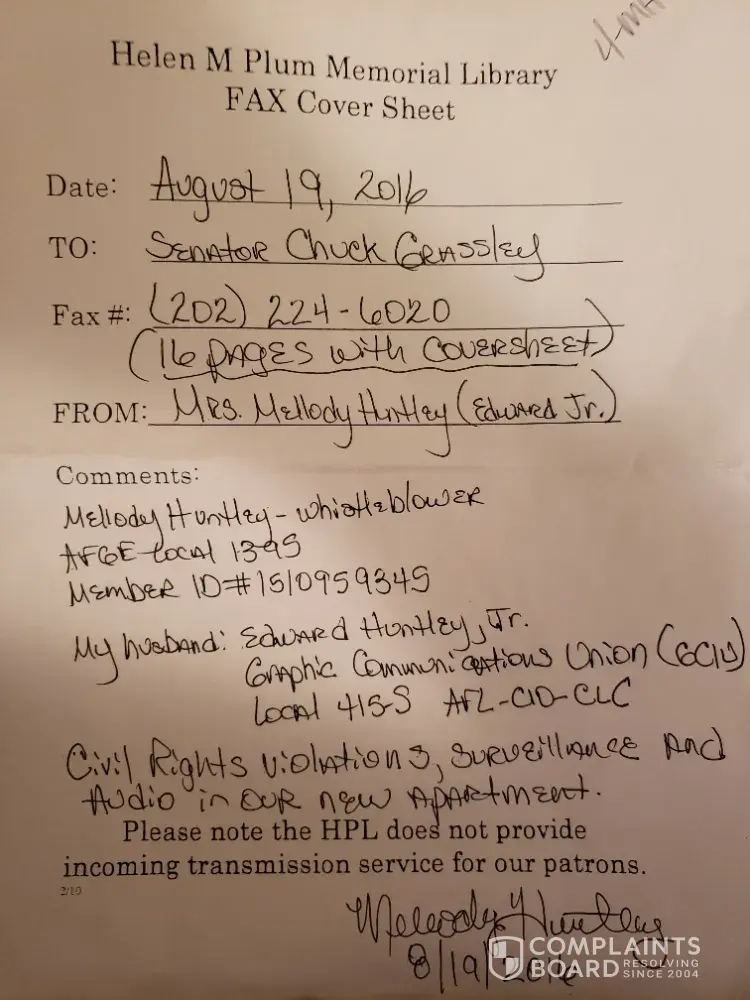 Helen M Plum Memorial Library
FAX Cover Sheet
Date: August 19, 2016
TO: Senator Chuck Grassley
Fax #: (202) 224-6020
(16 pages with coversheet)
FROM: Mrs. Mellody Huntley (Edward Jr.)
Comments:
Mellody Huntley - whistleblower
AFGE Local 1395
Member ID# 1510959345
My husband: Edward Huntley, Jr.
Graphic Communications Union (GCIU)
Local 415-S AFL-CIO-CLC
Civil Rights violations, surveillance and
Audio in our new apartment.
Please note the HPL does not provide
incoming transmission service for our patrons.
2/10
Mellody Huntley
8/19/2016
COMPLAINTS
BOARD RESOLVING
SINCE 2004